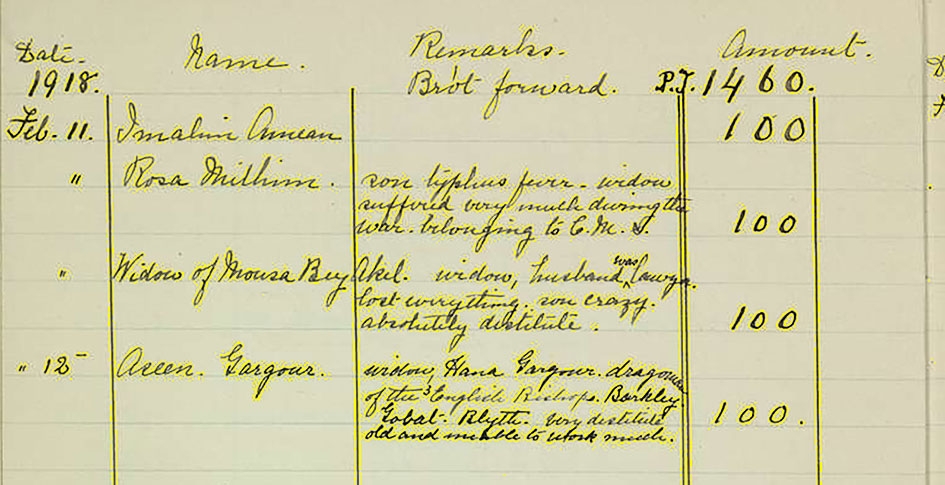 Date. Name. Remarks. Amount.
1918. Bro't forward. P.T. 1460.
Feb. 11. Imalim Amean 100
" Rosa Milhim. son typhus fever - widow
suffered very much during the
war. belonging to C.M.S. 100
" Widow of Mousa Bey Akel. widow, husband was lawyer.
lost everything. son crazy.
absolutely destitute. 100
" 12 Aseen. Gargour. widow, Hana Gargour. dragoman
of the 3 English Bishops. Barkley
Gobat. Blyth. very destitute
old and unable to work much. 100.